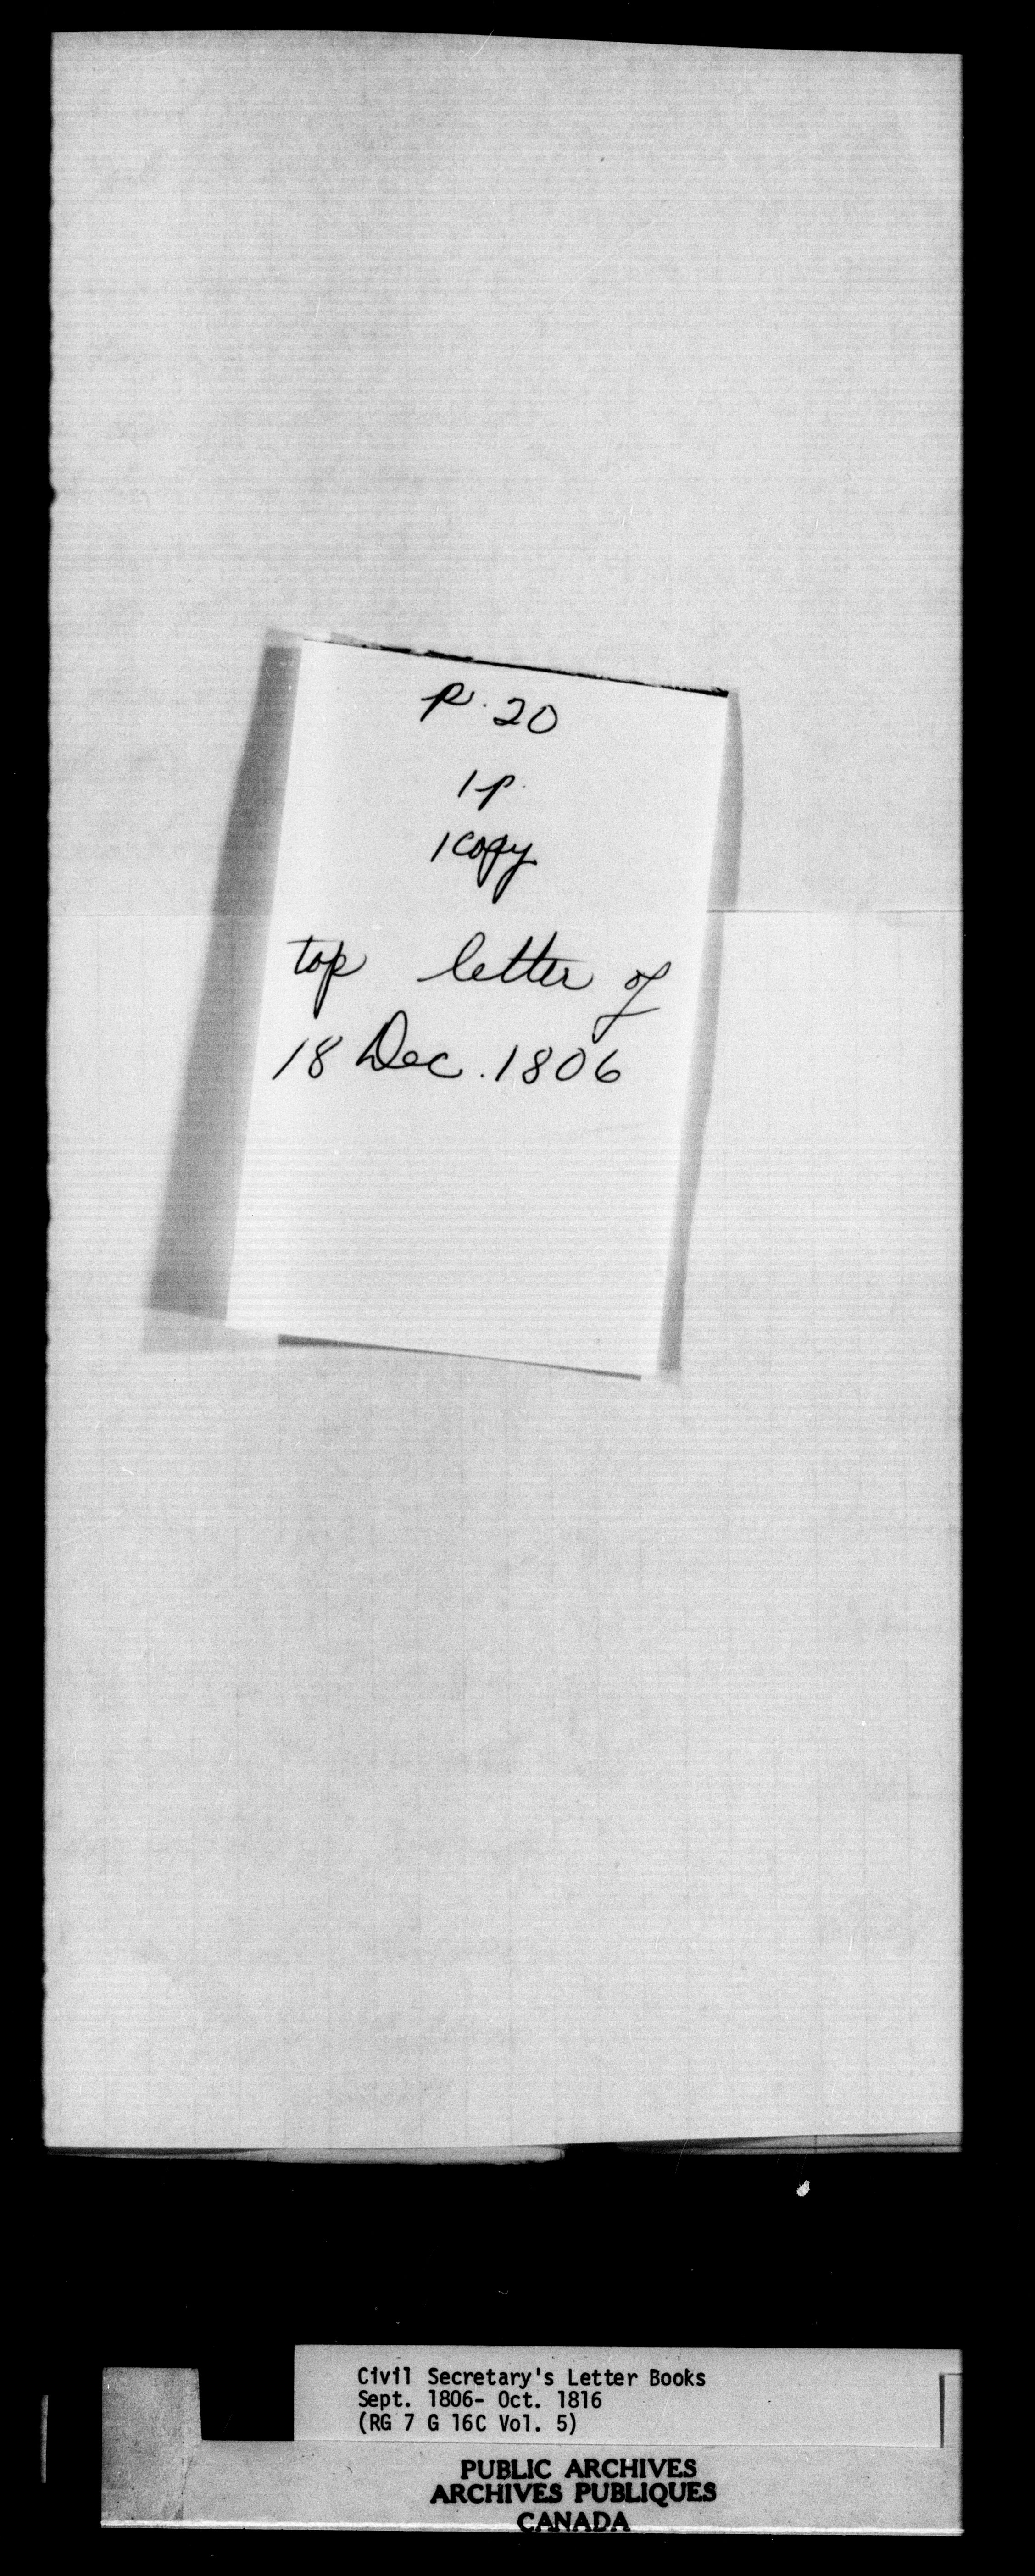 p. 20
1p.
1 copy
top letter of
18 Dec. 1806
Civil Secretary's Letter Books
Sept. 1806- Oct. 1816
(RG 7 G 16C Vol. 5)
PUBLIC ARCHIVES
ARCHIVES PUBLIQUES
CANADA